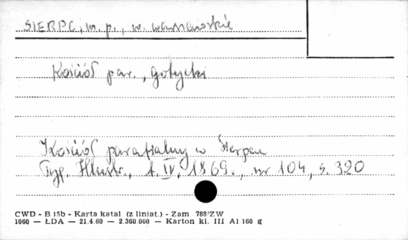 SIERPC, m. p., w. warszawskie
Kościół par., gotycki
Kościół parafialny w Sierpcu
Tyg. Illustr., t. IV, 1869., nr 104, s. 320
CWD - B 15b - Karta katal (z liniat.) - Zam 788/ZW
1060 — ŁDA — 21.4.60 — 2.360.000 — Karton kl. III A1 160 g